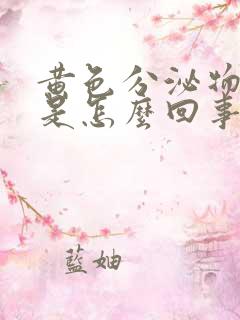 黄色分泌物
是怎麼回事
藍妯